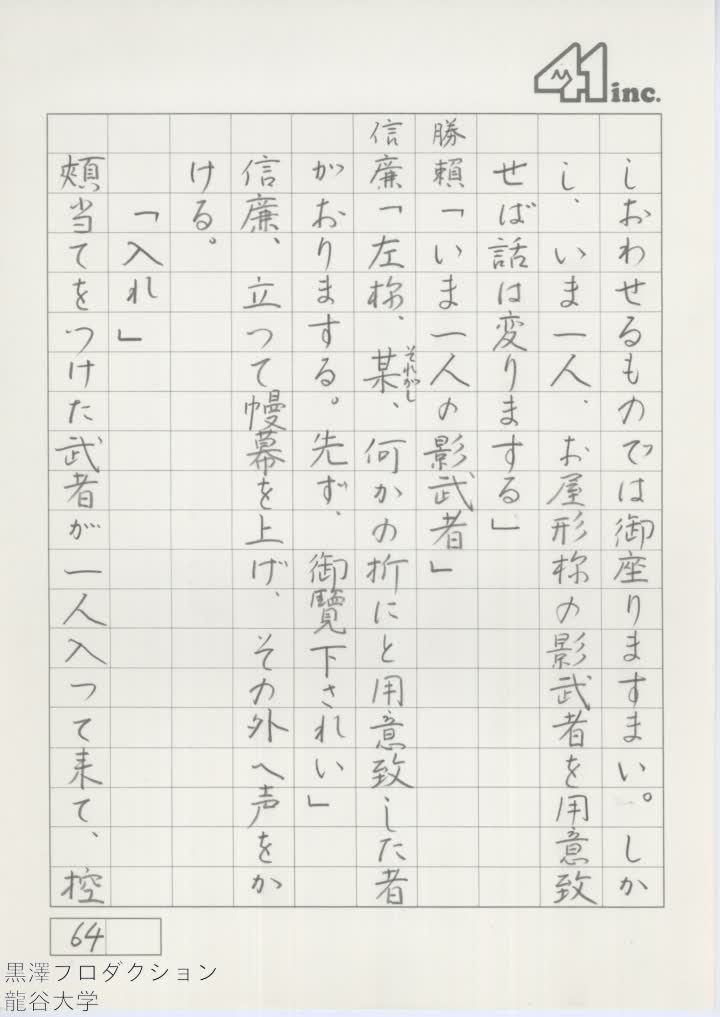 41 inc.
しおわせるものでは御座りますまい。しか
し、いま一人、お屋形様の影武者を用意致
せば話は変りまする」
勝頼「いま一人の影武者」
信廉「左様、某、何かの折にと用意致した者
それがし
がおりまする。先ず、御覽下されい」
信廉、立つて幔幕を上げ、その外へ声をか
ける。
「入れ」
頬当てをつけた武者が一人入つて来て、控
64
黒澤プロダクション
龍谷大学